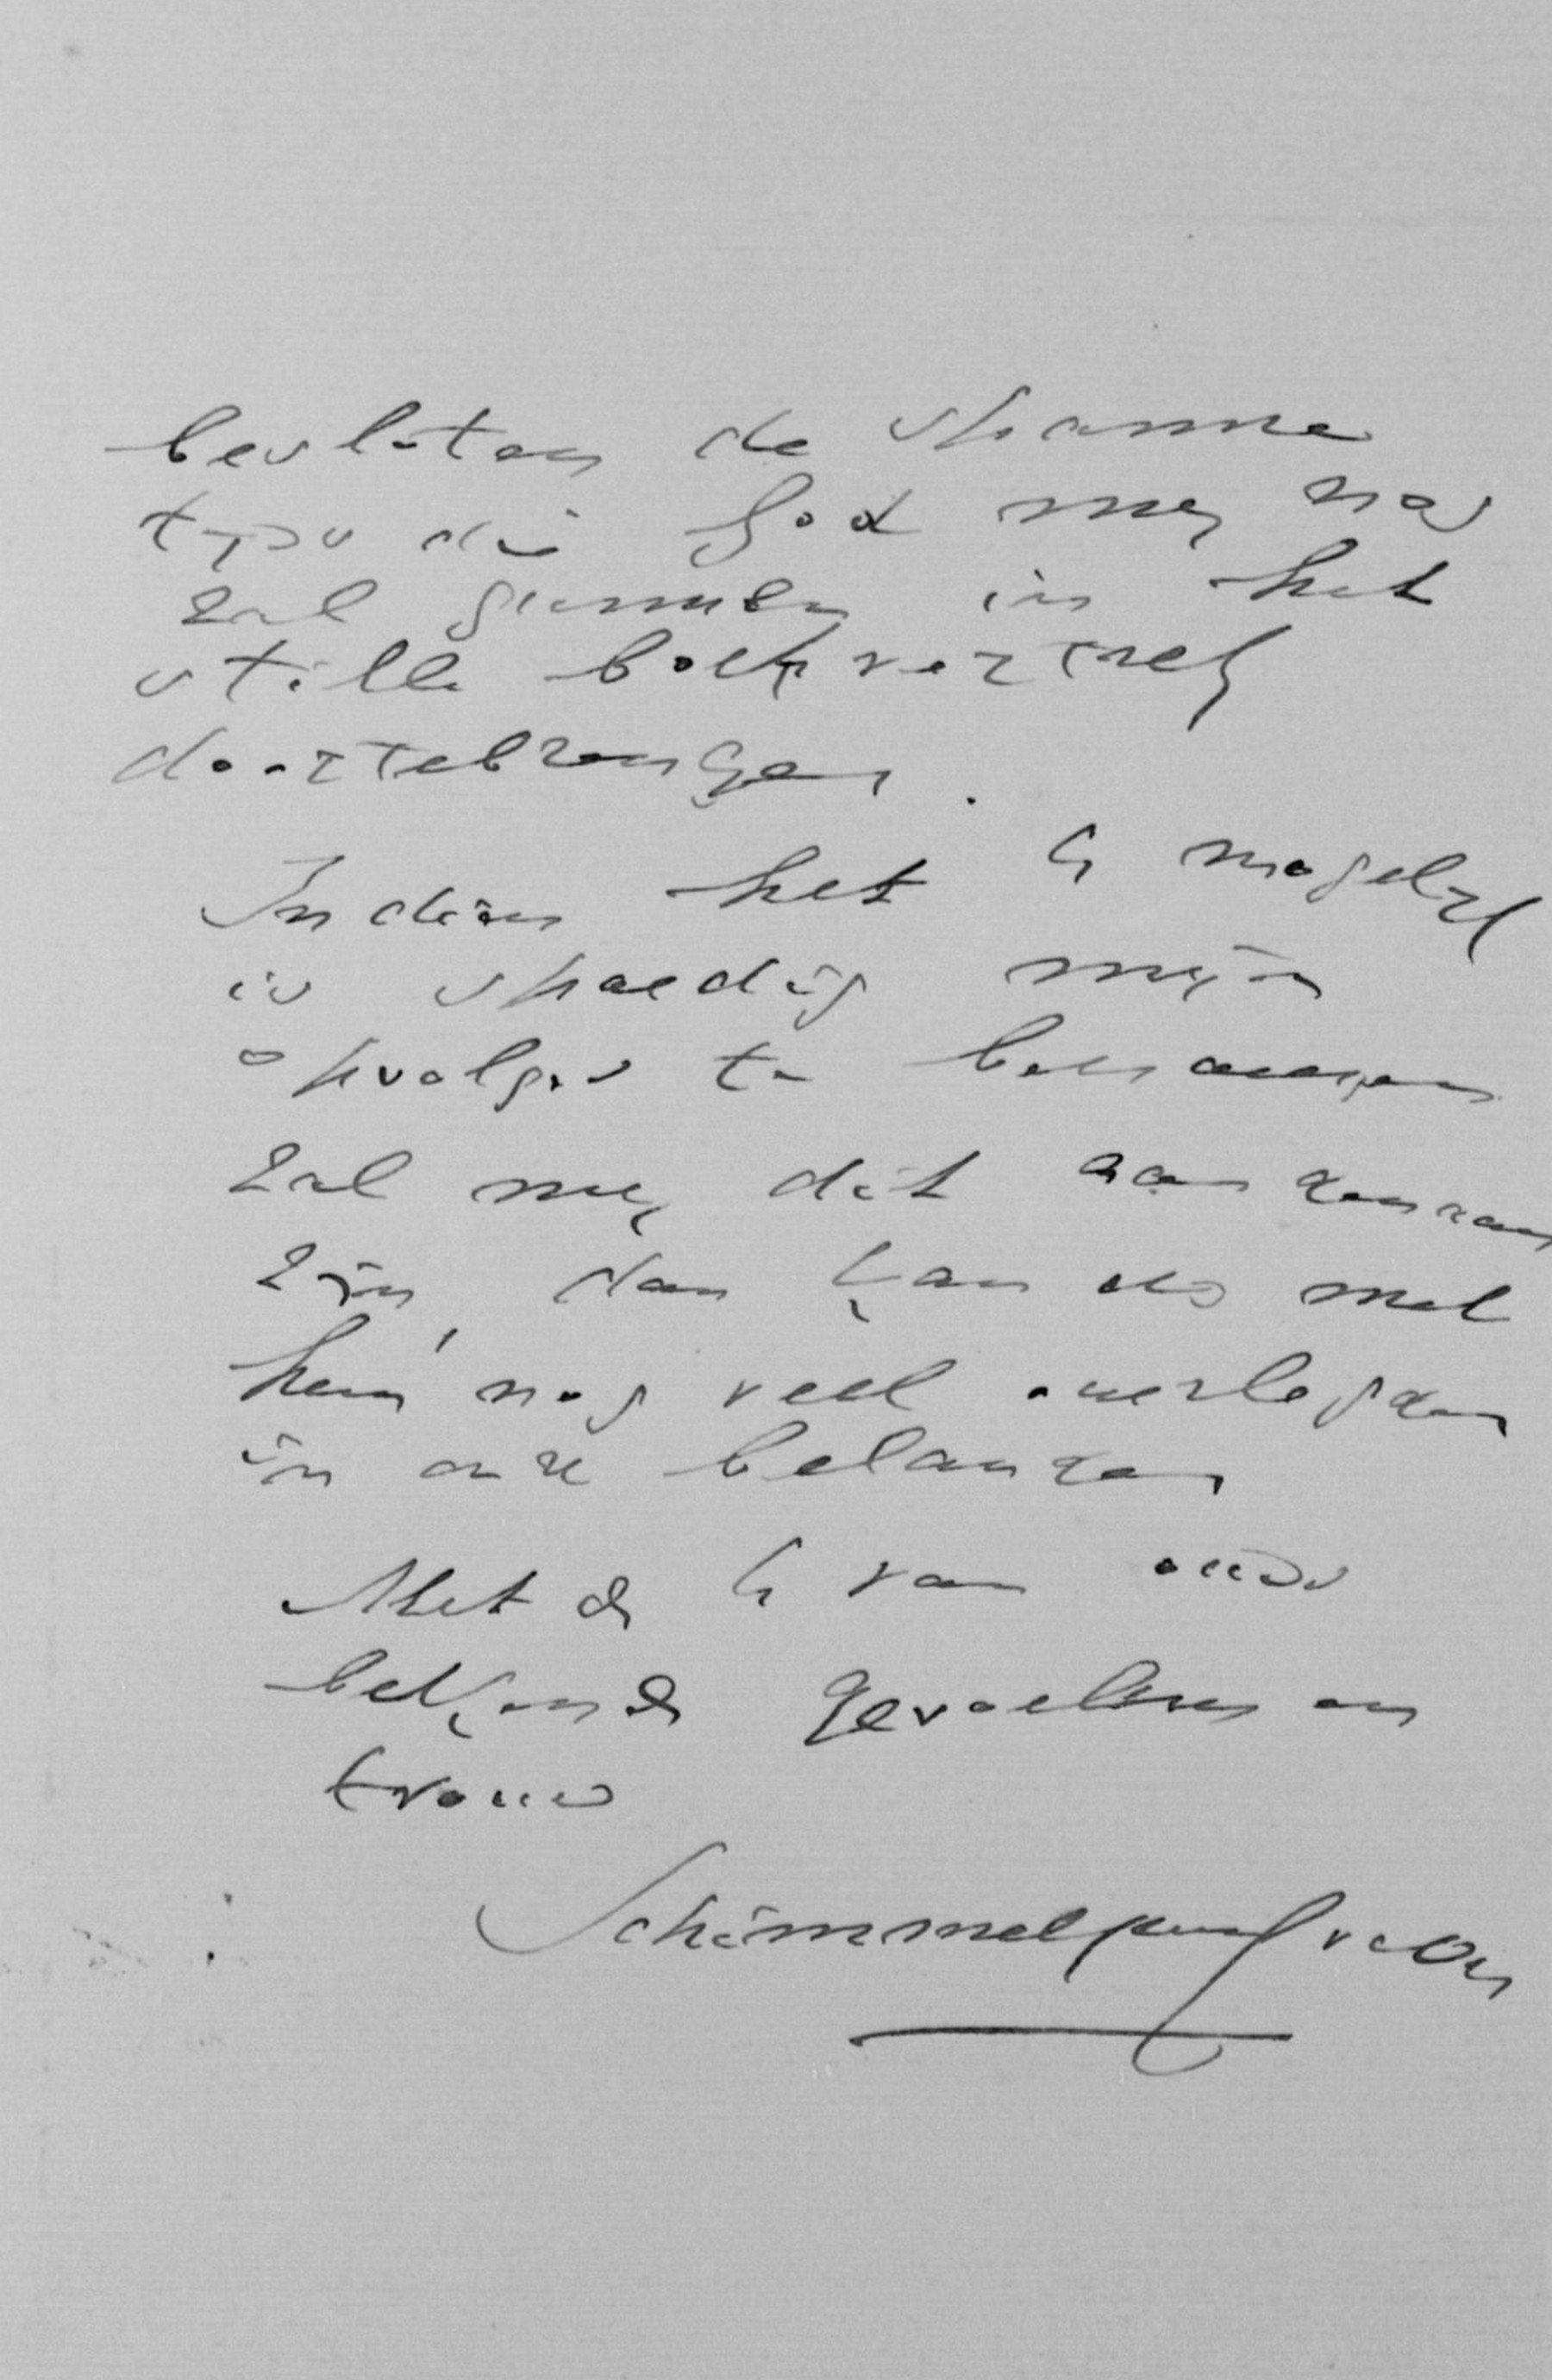 besloten de spanne
tyds die God my nog
zal gunnen in het
stille boekvertrek
doortebrengen.
Indien het U mogelyk
is spoedig mijn
opvolger te benoemen
zal my dit aangenaam
zijn, dan kan ik met
hem nog veel overleggen
in onze belangen
Met de U van ouds
bekende gevoelens en
trouw
Schimmelpenninck